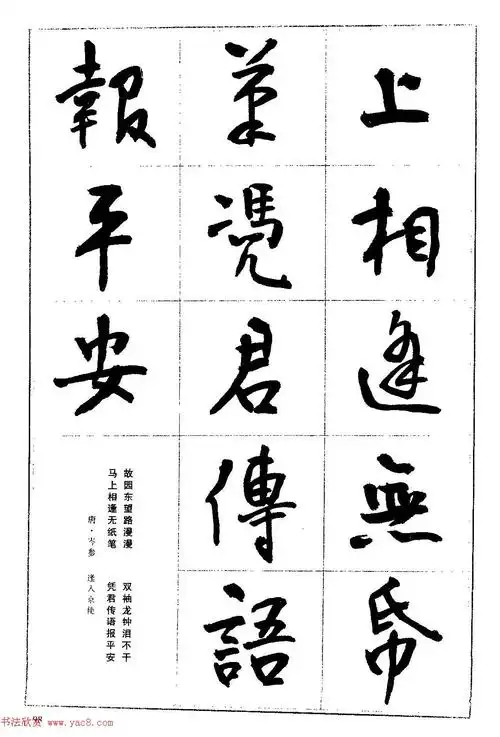 上相逢無帋
筆凴君傳語
報平安
故园东望路漫漫 双袖龙钟泪不干
马上相逢无纸笔 凭君传语报平安
唐·岑参 逢入京使
98
书法欣赏 www.yac8.com